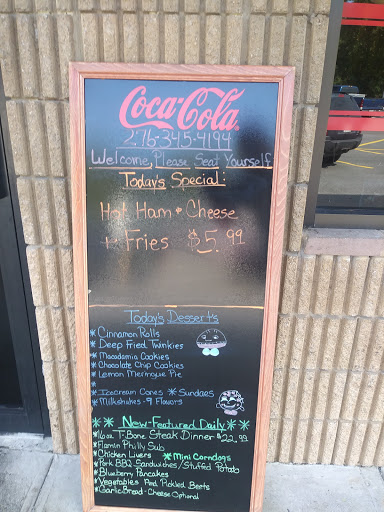 Coca-Cola
276-345-4194
Welcome, Please Seat Yourself
Today's Special:
Hot Ham & Cheese
+ Fries $5.99
Today's Desserts
* Cinnamon Rolls
* Deep Fried Twinkies
* Macadamia Cookies
* Chocolate Chip Cookies
* Lemon Meringue Pie
*
* Icecream Cones * Sundaes
* Milkshakes - 9 Flavors
** New-Featured Daily **
*16oz T-Bone Steak Dinner $22.99
*Flamin Philly Sub
*Chicken Livers *Mini Corndogs
*Pork BBQ Sandwiches/Stuffed Potato
*Blueberry Pancakes
*Vegetables And Pickled Beets
*Garlic Bread - Cheese Optional